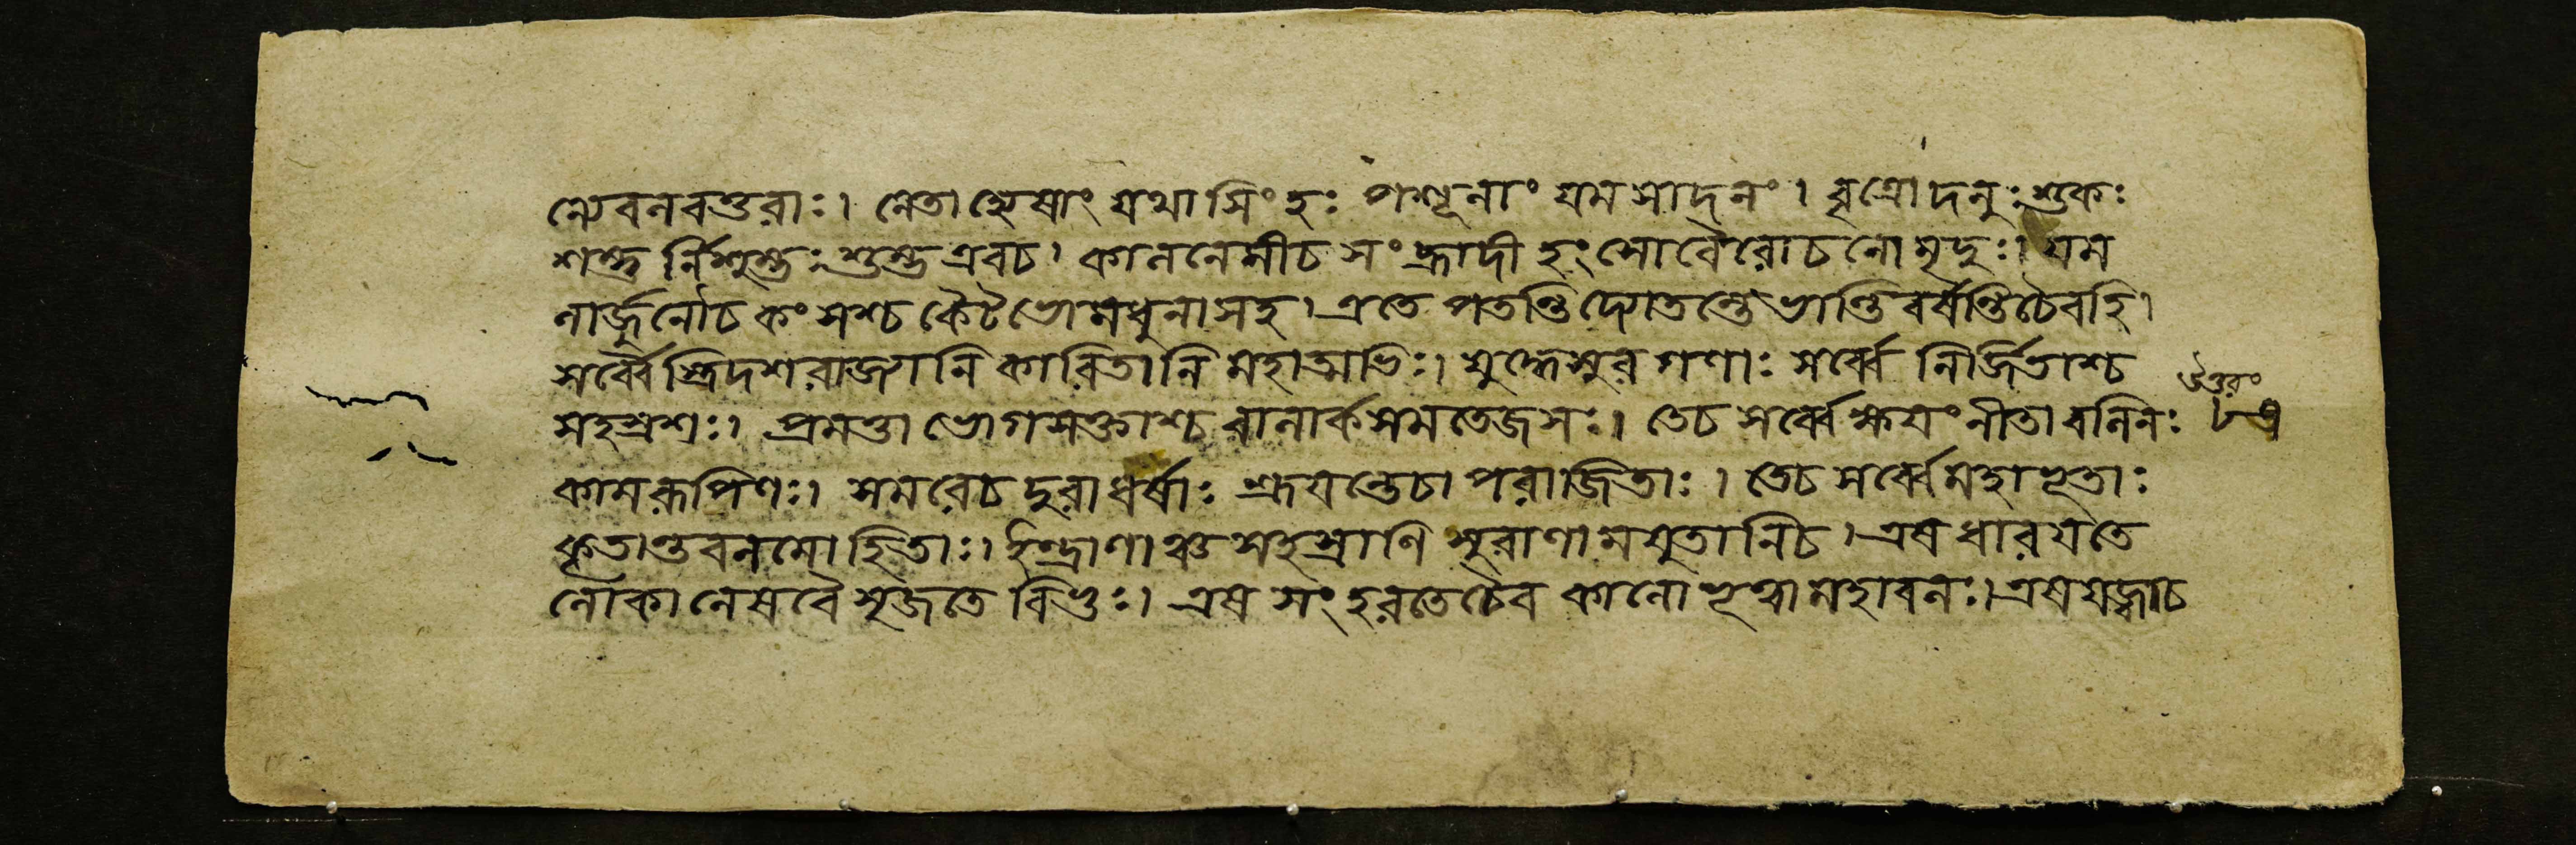 ন্যেবনবত্তরাঃ। নেতাহ্যেষাং যথাসিংহঃ পশূনাং যমসাদনং। বৃত্রোদনুঃশুকঃ
শম্ভুর্নিশুম্ভঃশুম্ভএবচ। কালনেমীচ সংহ্রাদী হংসোবৈরোচনোমৃদুঃ। যম
লার্জ্জুনৌচ কংসশ্চ কৈটভোমধুনাসহ। এতে পতন্তিদ্যোতন্তেভান্তিবর্ষন্তিচৈবহি।
সর্ব্বৈস্ত্রিদশরাজ্যানি কারিতানি মহাত্মভিঃ। যুদ্ধেসুরগণাঃ সর্ব্বে নির্জিতাশ্চ
সহস্রশঃ। প্রমত্তা ভোগসক্তাশ্চ বালার্কসমতেজসঃ। তেচ সর্ব্বেক্ষয়ংনীতাবলিনঃ
কামরূপিণঃ। সমরেচ দুরাধর্ষাঃ শ্রূয়ন্তেচাপরাজিতাঃ। তেচ সর্ব্বেমহাভূতাঃ
কৃতান্তবলমোহিতাঃ। ইন্দ্রাণাঞ্চ সহস্রাণি সুরাণামযুতানিচ। এষধারয়তে
লোকানেষবৈ সৃজতে বিভুঃ। এষ সংহরতেচৈব কালোভূত্বামহাবলঃ। এষযজ্বাচ